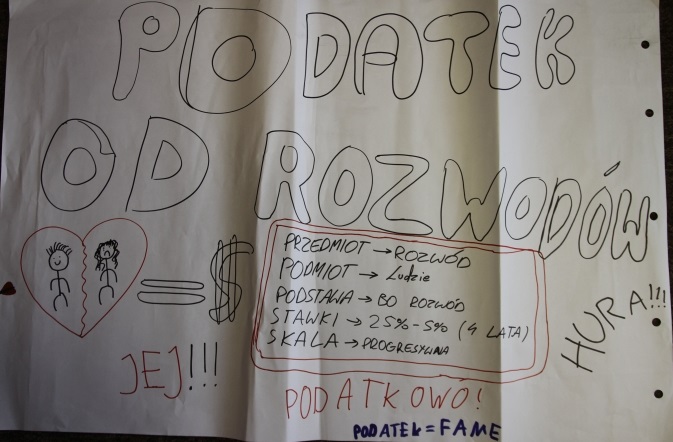 PODATEK
OD ROZWODÓW
= $
PRZEDMIOT → ROZWÓD
PODMIOT → Ludzie
PODSTAWA → BO ROZWÓD
STAWKI → 25% - 5% (4 LATA)
SKALA → PROGRESYWNA
JEJ!!!
HURA!!!
PODATKOWÓ!
PODATEK = FAME